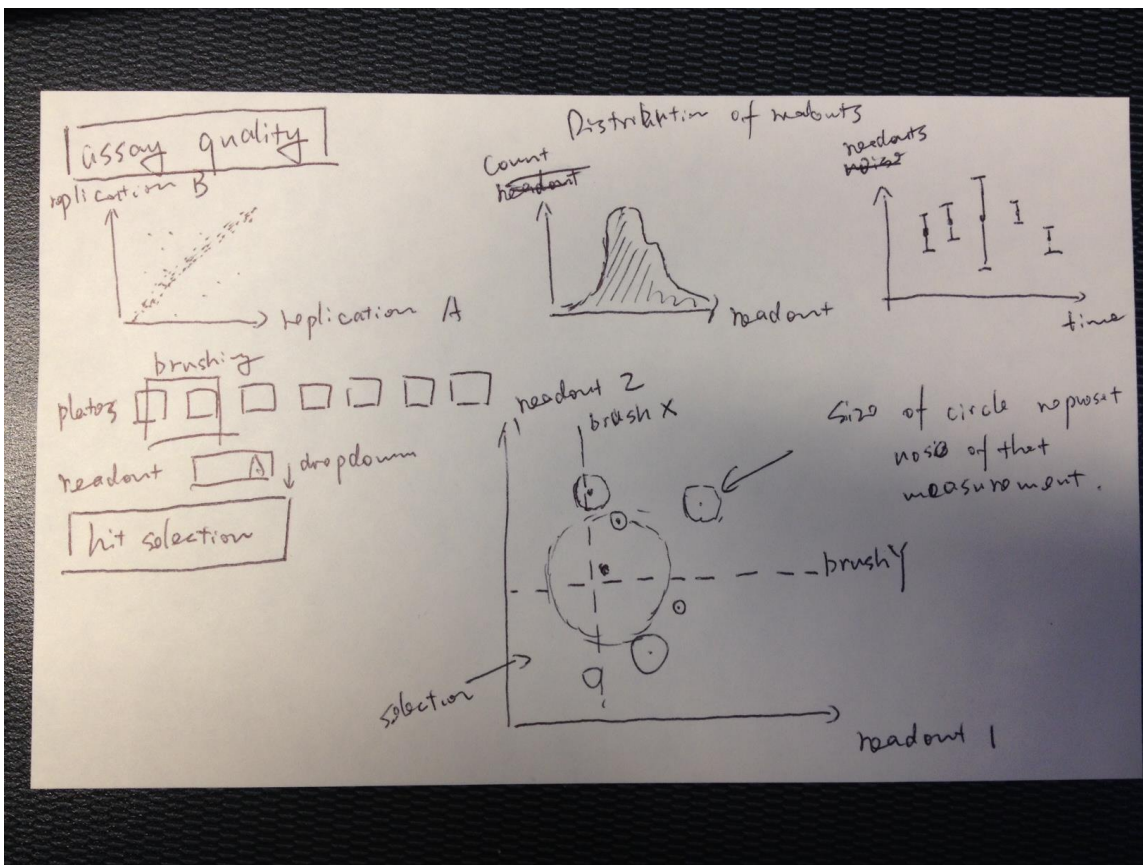 assay quality
Distribution of readouts
replication B
replication A
Count
readout
readout
readouts
noise
time
brushing
plates
readout A dropdown
hit selection
readout 2
brush X
Size of circle represet
nose of that
measurement.
brush Y
selection
readout 1